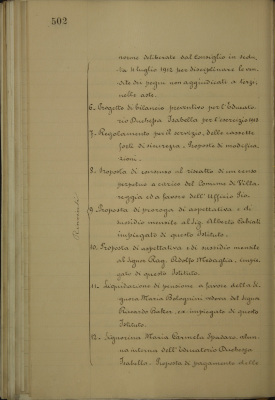 502
norme deliberate dal Consiglio in sedu-
ta 4 luglio 1912 per disciplinare le ven-
dite dei pegni non aggiudicati a terzi
nelle aste.
6. Progetto di bilancio preventivo per l'Educato-
rio Duchessa Isabella per l'esercizio 1913
7. Regolamento per il servizio delle cassette
forti di sicurezza. Proposta di modifica-
zioni.
8. Proposta di assenso al riscatto di un censo
perpetuo a carico del Comune di Villa-
reggia ed a favore dell'Ufficio Pio.
9. Proposta di proroga di aspettativa e di
sussidio mensile al Sig. Alberto
impiegato di questo Istituto.
10. Proposta di aspettativa e di sussidio mensile
al Signor Rag. Adolfo Medaglia, impie-
gato di questo Istituto.
11. Liquidazione di pensione a favore della Si-
gnora Maria Bolognini vedova del Signor
Riccardo ex impiegato di questo
Istituto.
12. Signorina Maria Carmela Spadaro, alun-
na interna dell'Educatorio Duchessa
Isabella. Proposta di pagamento delle